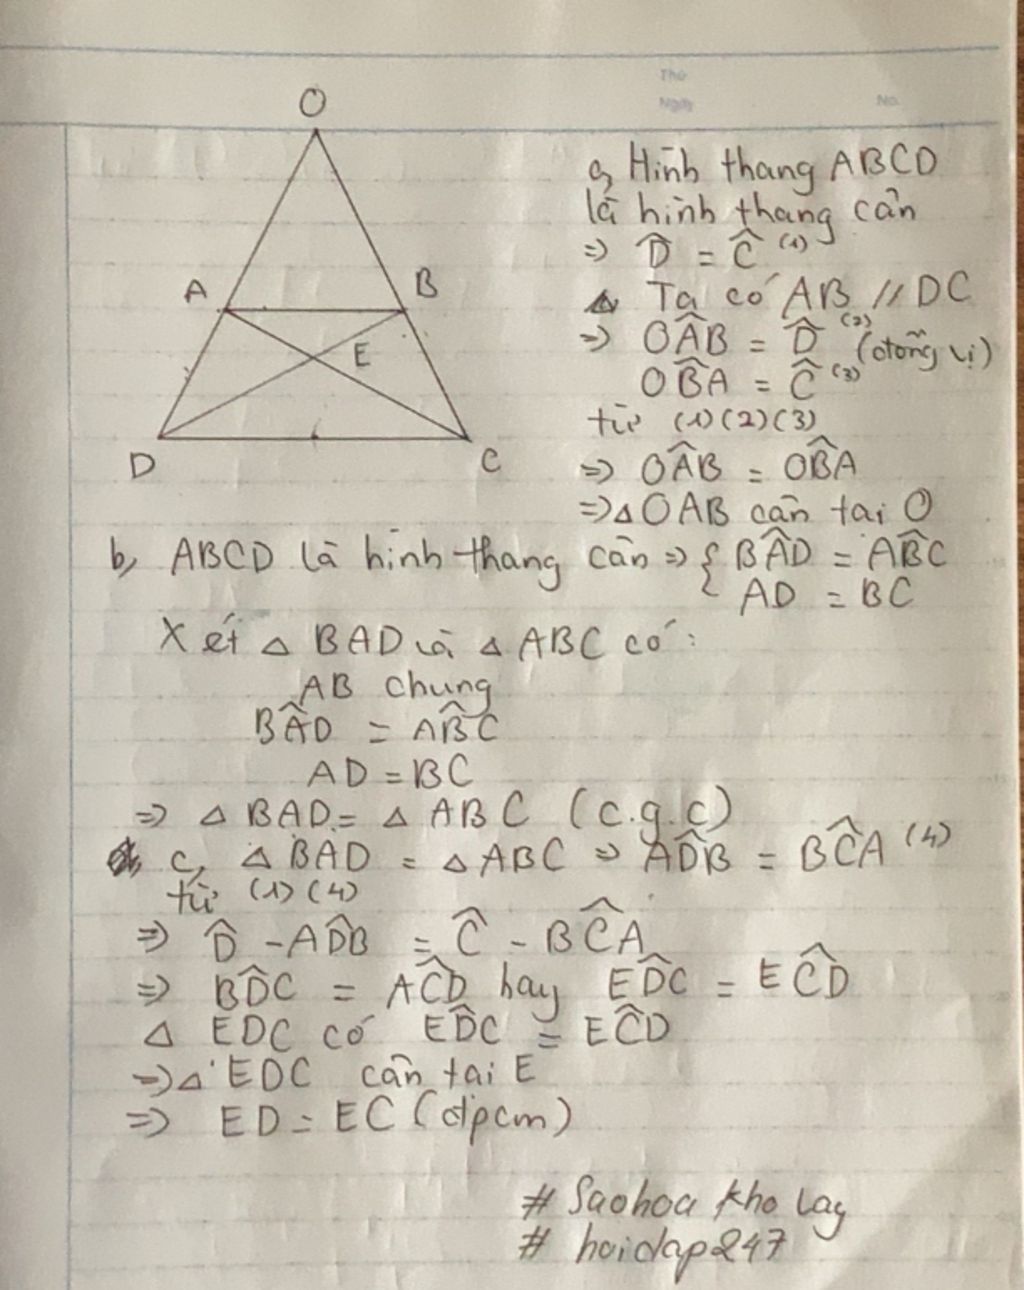 Thứ
Ngày No.
O
A B
E
D C
a, Hình thang ABCD
là hình thang cân
=> D̂ = Ĉ (1)
Ta có AB // DC
=> OÂB = D̂ (2) (đồng vị)
OB̂A = Ĉ (3)
từ (1)(2)(3)
=> OÂB = OB̂A
=> △ OAB cân tại O
b, ABCD là hình thang cân => { BÂD = AB̂C
AD = BC
Xét △ BAD và △ ABC có:
AB chung
BÂD = AB̂C
AD = BC
=> △ BAD = △ ABC (c.g.c)
c, △ BAD = △ ABC => AD̂B = BĈA (4)
từ (1) (4)
=> D̂ - AD̂B = Ĉ - BĈA
=> BD̂C = AĈD hay ED̂C = EĈD
△ EDC có ED̂C = EĈD
=> △ EDC cân tại E
=> ED = EC (đpcm)
# Saohoa kho lay
# hoidap247